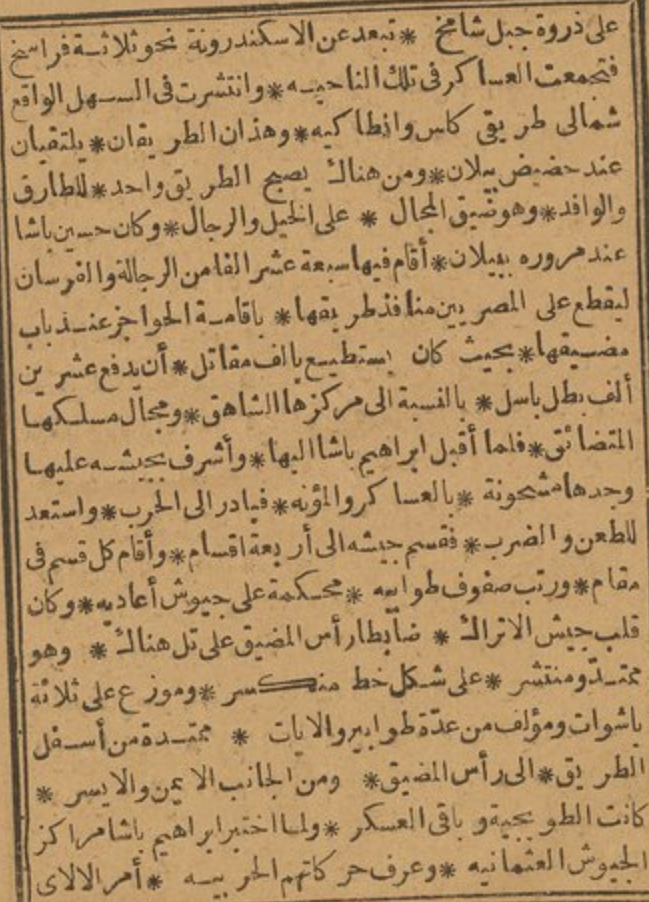 على ذروة جبل شامخ * تبعد عن الاسكندرونة نحو ثلاثة فراسخ
فتجمعت العساكر فى تلك الناحيه * وانتشرت فى السهل الواقع
شمالى طريقى كاس وانطاكيه * وهذان الطريقان * يلتقيان
عند حضيض بيلان * ومن هناك يصبح الطريق واحد * للطارق
والوافد * وهو ضيق المجال * على الخيل والرجال * وكان حسين باشا
عند مروره ببيلان * أقام فيها سبعة عشر الفا من الرجالة والفرسان
ليقطع على المصريين منافذ طريقها * باقامة الحواجز عند باب
مضيقها * بحيث كان يستطيع بالف مقاتل * أن يدفع عشرين
ألف بطل باسل * بالنسبة الى مركزها الشاهق * ومجال مسلكها
المتضائق * فلما أقبل ابراهيم باشا اليها * وأشرف بجيشه عليها
وجدها مشحونة * بالعساكر والمؤنه * فبادر الى الحرب * واستعد
للطعن والضرب * فقسم جيشه الى أربعة اقسام * وأقام كل قسم فى
مقام * ورتب صفوف طوابيه * محكمة على جيوش أعاديه * وكان
قلب جيش الاتراك * ضابطا رأس المضيق على تل هناك * وهو
ممتد ومنتشر * على شكل خط منكسر * وموزع على ثلاثة
باشوات ومؤلف من عدّة طوابير والايات * ممتدة من أسفل
الطريق * الى رأس المضيق * ومن الجانب الايمن والايسر *
كانت الطوبجية وباقى العسكر * ولما اختبر ابراهيم باشا مراكز
الجيوش العثمانيه * وعرف حركاتهم الحربيه * أمر الالاى